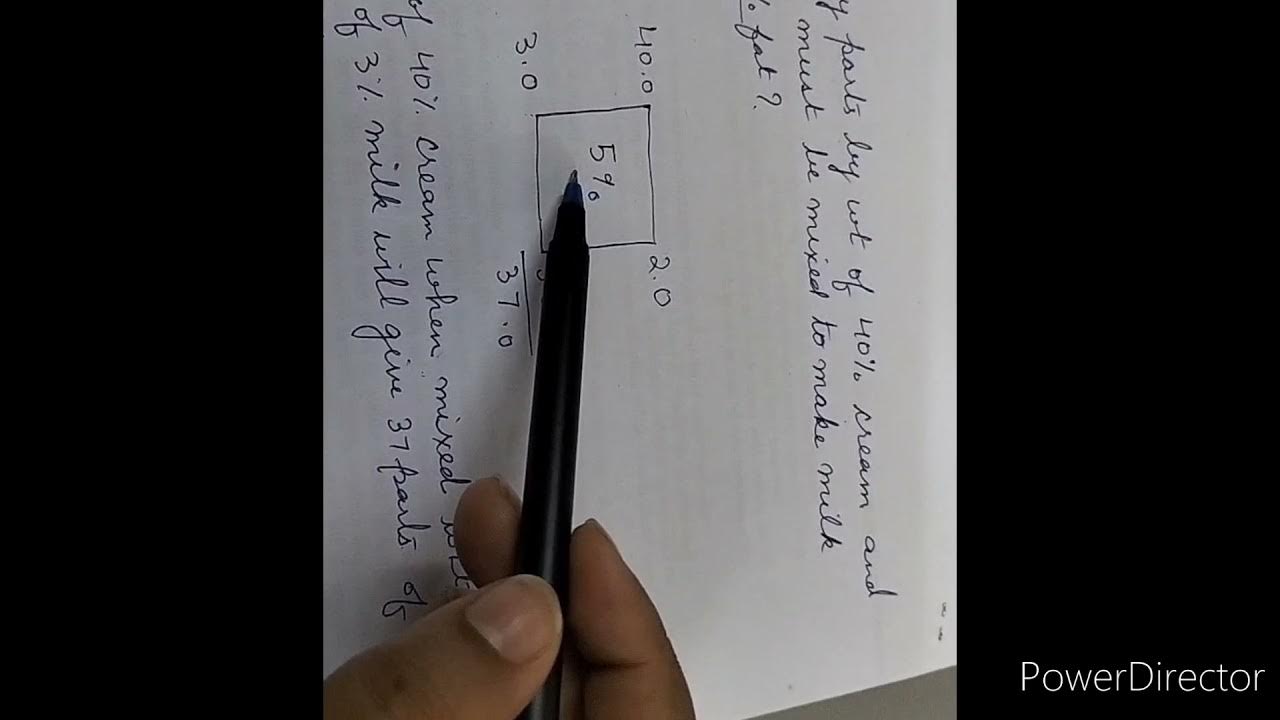 y parts by wt of 40% cream and
must be mixed to make milk
% fat?
40.0 2.0
5%
3.0
37.0
of 40% cream when mixed
of 3% milk will give 37 parts of
PowerDirector